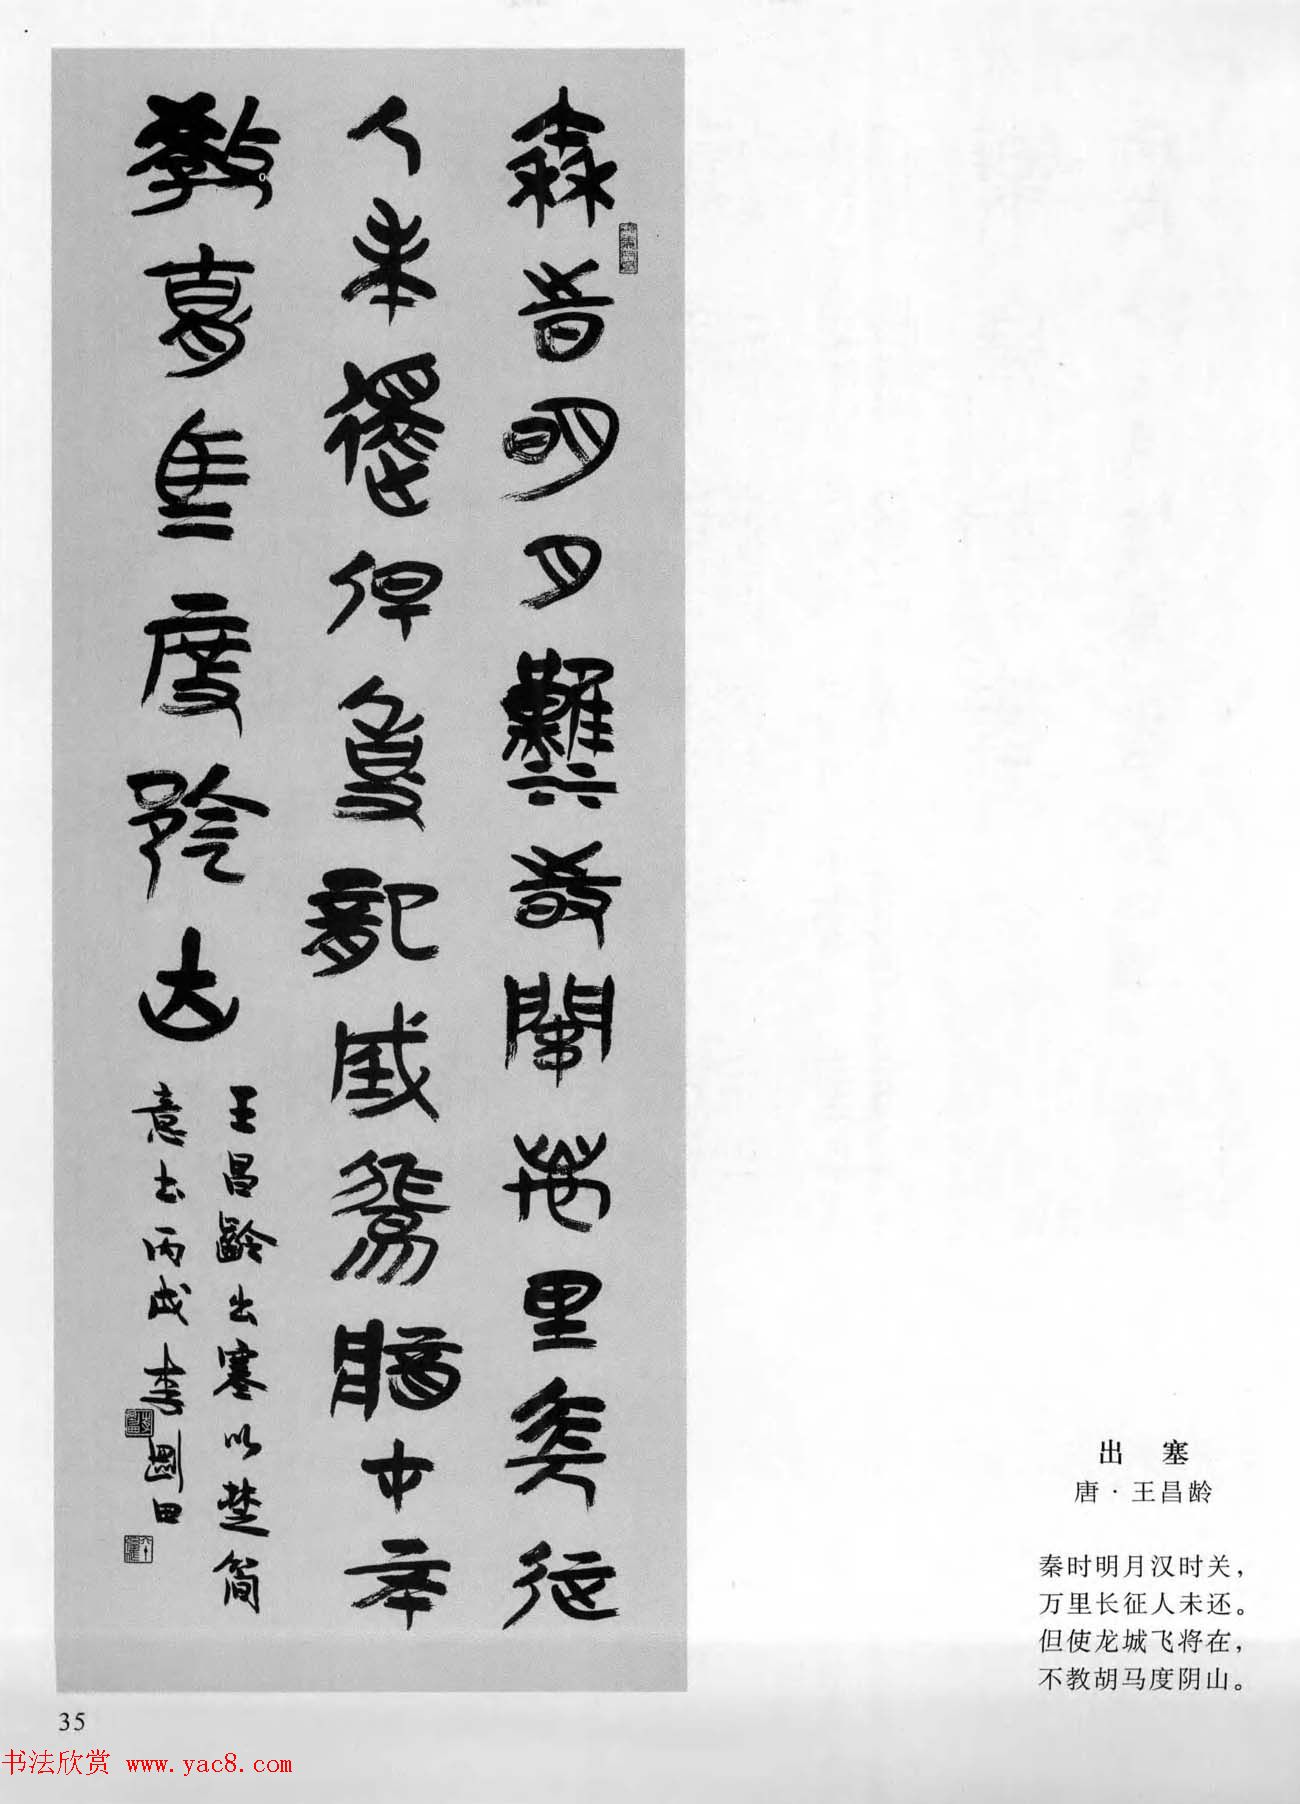 秦时明月难时关万里长征
人未还但使龙城飞将中不
教胡马度阴山
王昌龄出塞以楚简
意书丙戌李国田
出 塞
唐·王昌龄
秦时明月汉时关，
万里长征人未还。
但使龙城飞将在，
不教胡马度阴山。
35
书法欣赏 www.yac8.com